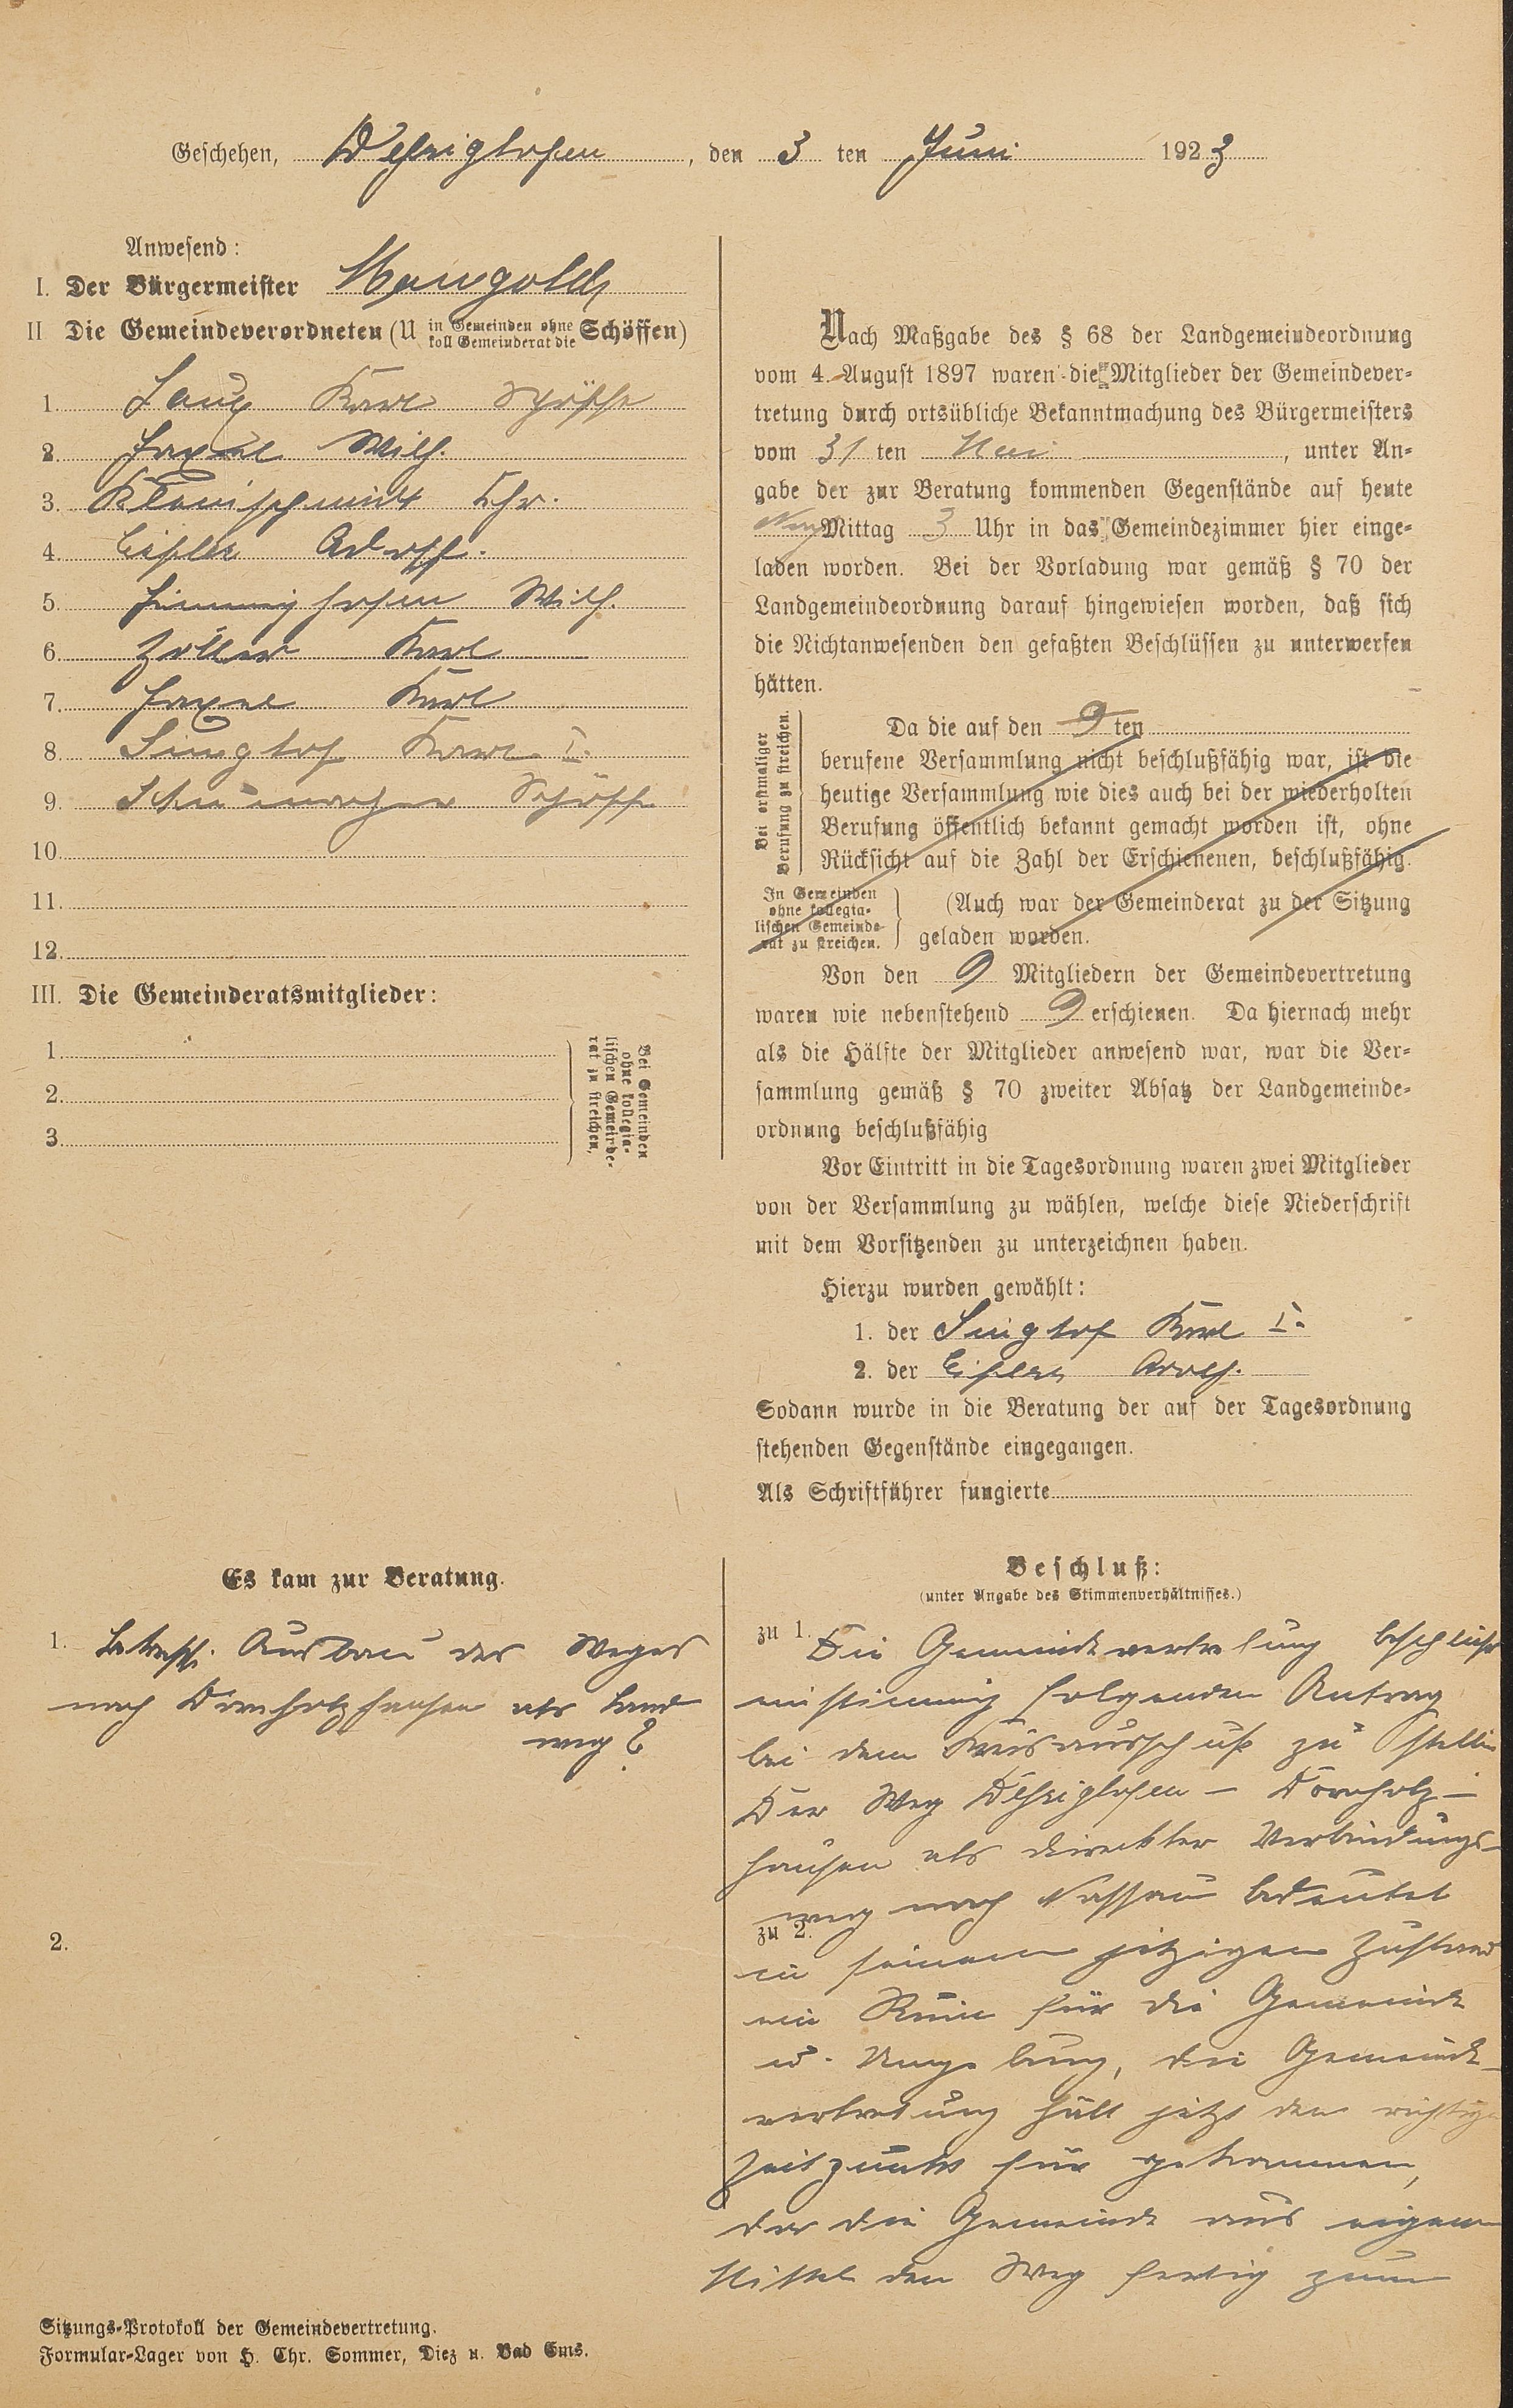 Geschehen, Dessighofen, den 3 ten Juni 1923
Anwesend:
I. Der Bürgermeister Mangold
II Die Gemeindeverordneten (U in Gemeinden ohne koll Gemeinderat die Schöffen)
1. Lang Karl Schöffe
2. Wilh.
3. Kleinschmidt Chr.
4. Adolf.
5. Himmighofen Wilh.
6. Zöller Karl
7. Karl
8. Singhof Karl I.
9. Schuhmacher Schöffe
10.
11.
12.
III. Die Gemeinderatsmitglieder:
1.
2.
3.
Bei Gemeinden
ohne kollegia-
lischen Gemeinde-
rat zu streichen,
Nach Maßgabe des § 68 der Landgemeindeordnung
vom 4. August 1897 waren die Mitglieder der Gemeindever-
tretung durch ortsübliche Bekanntmachung des Bürgermeisters
vom 31 ten Mai, unter An-
gabe der zur Beratung kommenden Gegenstände auf heute
Nach Mittag 3 Uhr in das Gemeindezimmer hier einge-
laden worden. Bei der Vorladung war gemäß § 70 der
Landgemeindeordnung darauf hingewiesen worden, daß sich
die Nichtanwesenden den gefaßten Beschlüssen zu unterwerfen
hätten.
Bei erstmaliger
Berufung zu streichen.
Da die auf den 9 ten
berufene Versammlung nicht beschlußfähig war, ist die
heutige Versammlung wie dies auch bei der wiederholten
Berufung öffentlich bekannt gemacht worden ist, ohne
Rücksicht auf die Zahl der Erschienenen, beschlußfähig.
In Gemeinden
ohne kollegia-
lischen Gemeinde-
rat zu streichen.
(Auch war der Gemeinderat zu der Sitzung
geladen worden.
Von den 9 Mitgliedern der Gemeindevertretung
waren wie nebenstehend 9 erschienen. Da hiernach mehr
als die Hälfte der Mitglieder anwesend war, war die Ver-
sammlung gemäß § 70 zweiter Absatz der Landgemeinde-
ordnung beschlußfähig
Vor Eintritt in die Tagesordnung waren zwei Mitglieder
von der Versammlung zu wählen, welche diese Niederschrift
mit dem Vorsitzenden zu unterzeichnen haben.
Hierzu wurden gewählt:
1. der Singhof Karl I.
2. der Adolf.
Sodann wurde in die Beratung der auf der Tagesordnung
stehenden Gegenstände eingegangen.
Als Schriftführer fungierte
Es kam zur Beratung.
1. Ausbau des Weges
nach Dornholzhausen als Land
weg?
2.
Beschluß:
(unter Angabe des Stimmenverhältnisses.)
zu 1. Die Gemeindevertretung beschließt
einstimmig folgenden Antrag
bei dem Kreisausschuß zu stellen
Der Weg Dessighofen - Dornholz-
hausen als direkter Verbindungs-
weg nach Nassau bedeutet
zu 2.
in seinem jetzigen Zustand
ein Ruin für die Gemeinde
u. Umgebung, die Gemeinde-
vertretung hält jetzt den richtigen
Zeitpunkt für gekommen,
da die Gemeinde aus eigen
Mittel den Weg fertig zum
Sitzungs-Protokoll der Gemeindevertretung.
Formular-Lager von H. Chr. Sommer, Diez u. Bad Ems.